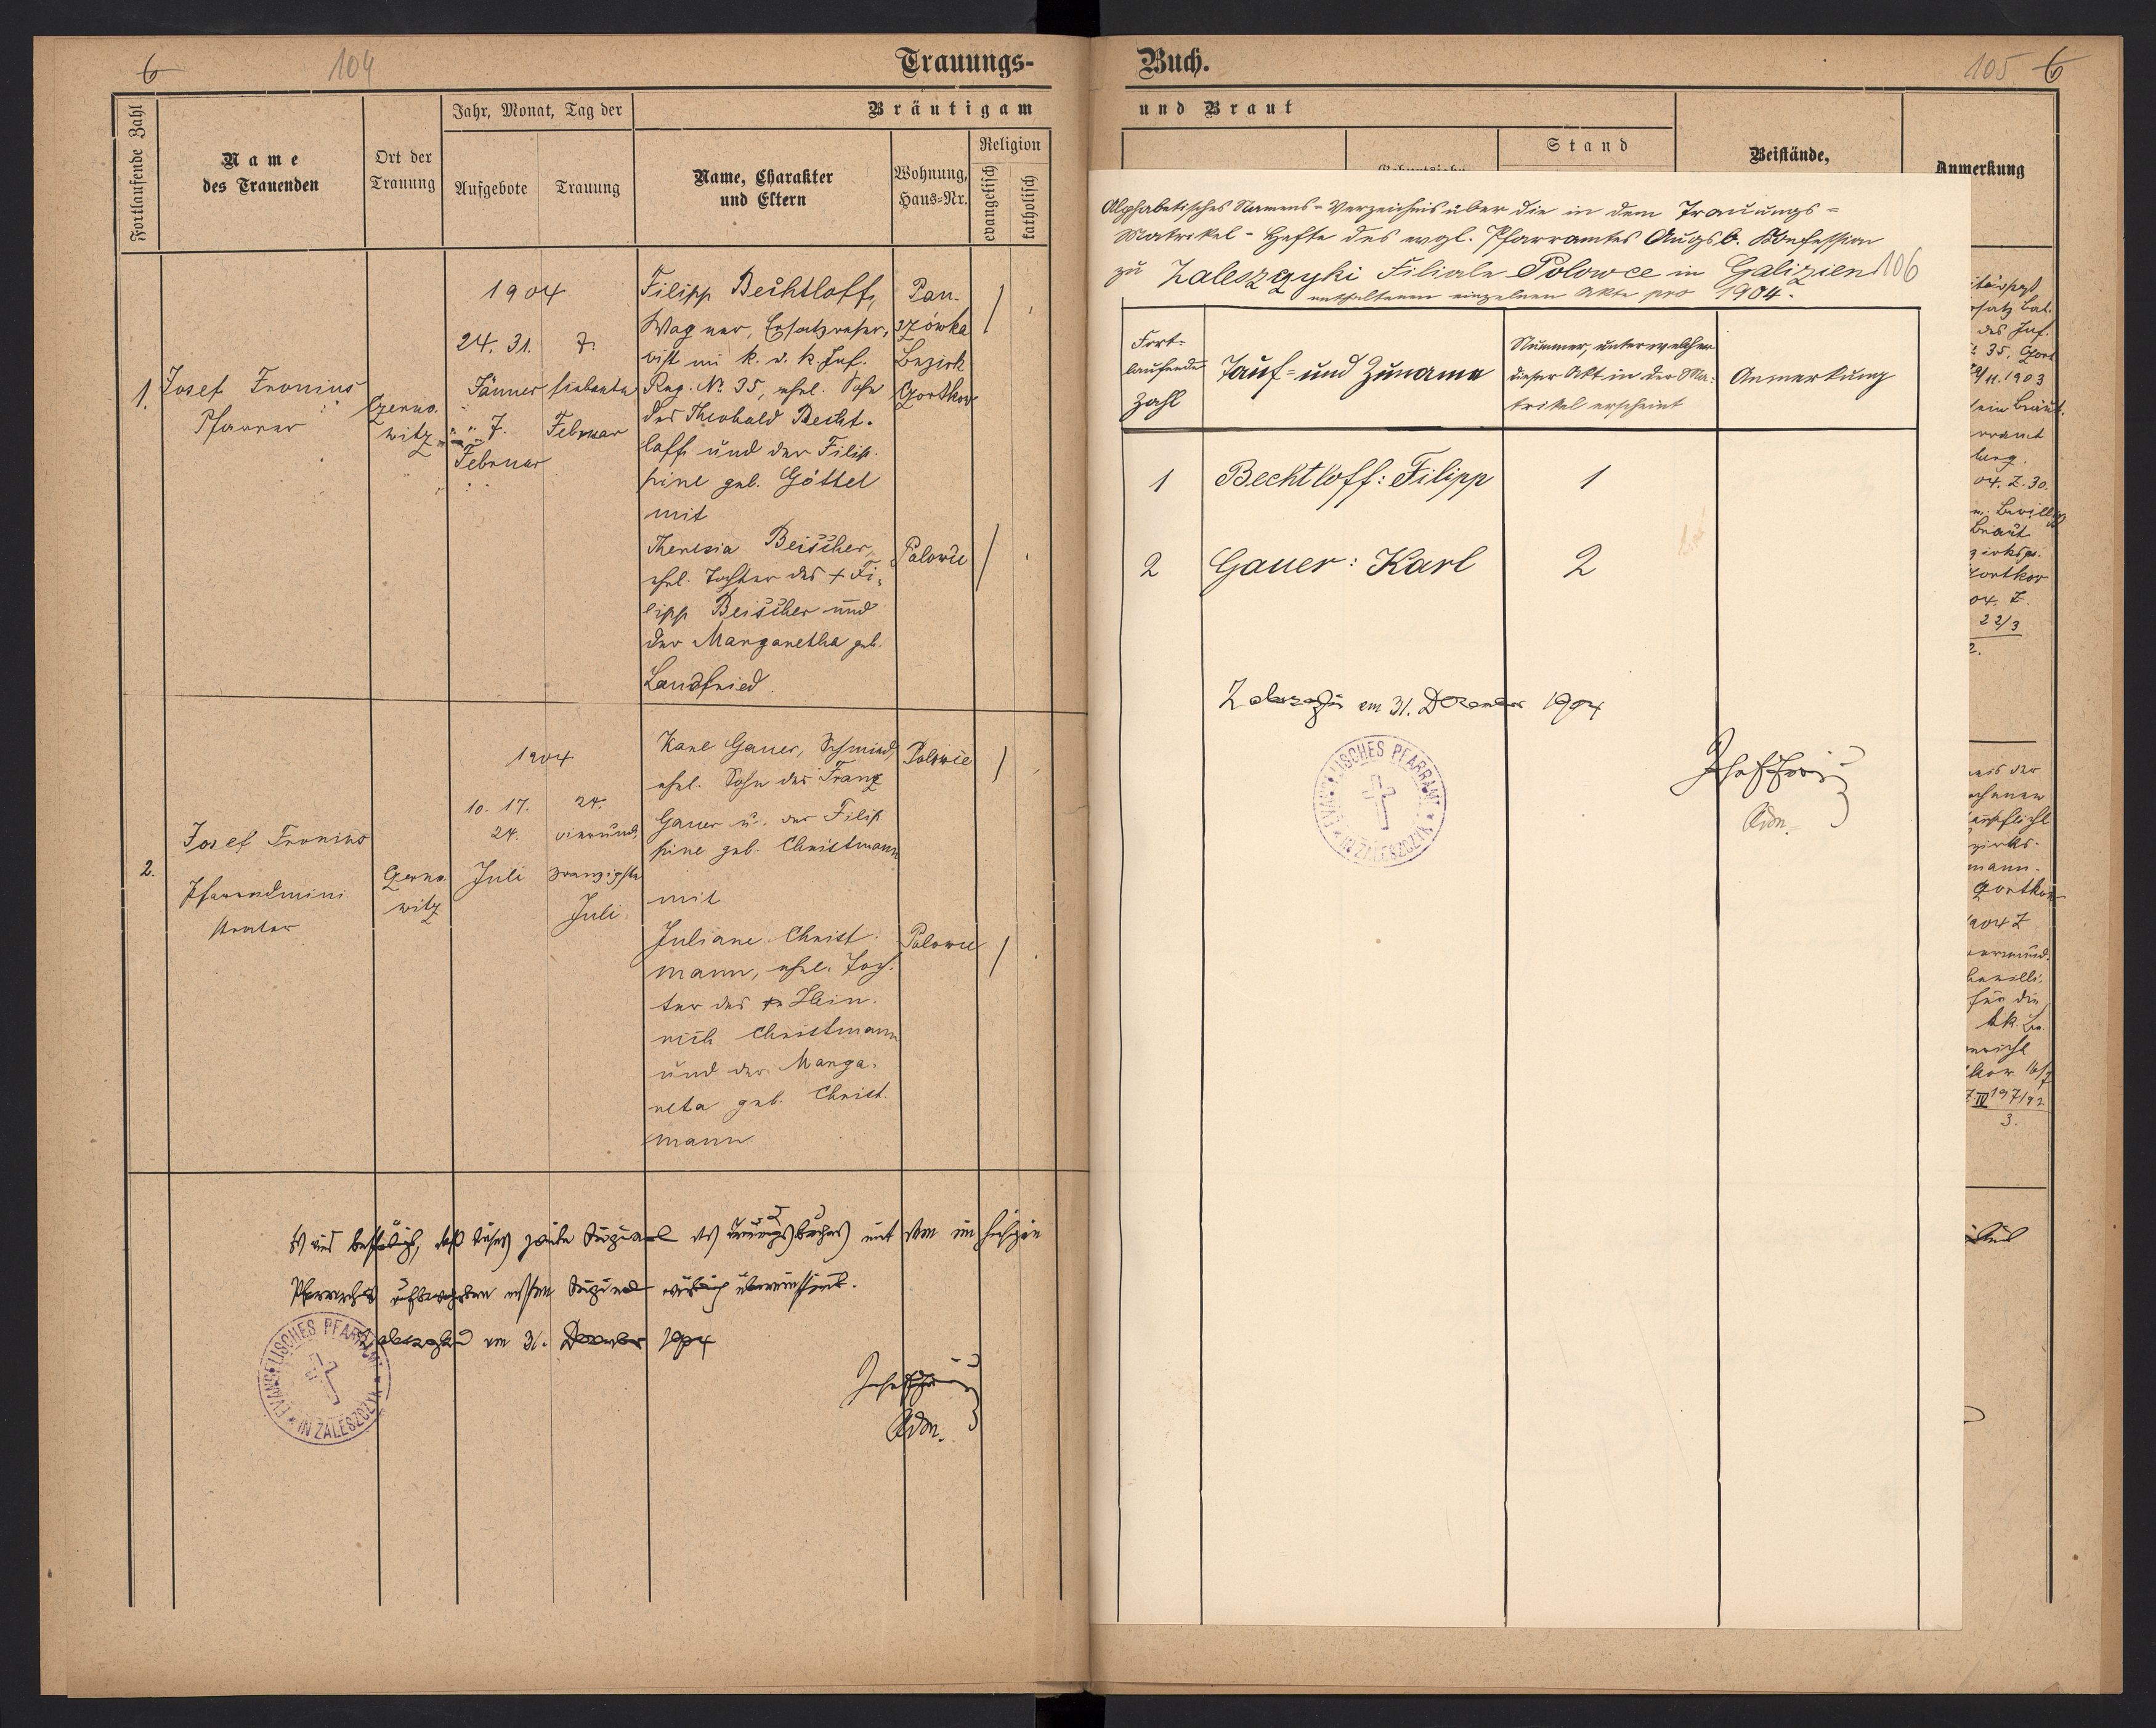 6
104
Trauungs-
Fortlaufende Zahl
Name
des Trauenden
Ort der
Trauung
Jahr, Monat, Tag der
Aufgebote
Trauung
Bräutigam
Name, Charakter
und Eltern
Wohnung,
Haus-Nr.
Religion
evangelisch
katholisch
1.
Josef Fronius
Pfarrer
Czerno-
witz
1904
24. 31.
Jänner
7.
Februar
7.
siebente
Februar
Filipp Bechtloff,
Wagner, Ersatzreser-
vist im k. u. k. Inf.
Reg. No. 35, ehel. Sohn
des Theobald Becht-
loff und der Filip-
pine geb. Göttel
mit
Theresia Beischer,
ehel. Tochter des + Fi-
lipp Beischer und
der Margaretha geb.
Landfried.
Pau-
szówka
Bezirk
Czortkow
Polowce
2.
Josef Fronius
Pfarradmini-
strator
Czerno-
witz
1904
10. 17.
24.
Juli
24.
vierund-
zwanzigste
Juli
Karl Gauer, Schmied,
ehel. Sohn des Franz
Gauer u. der Filip-
pine geb. Christmann
mit
Juliane Christ-
mann, ehel. Toch-
ter des Hein-
rich Christmann
und der Marga-
reta geb. Christ-
mann
Polowce
Polowce
Es wird bestätigt, daß dieses zweite Original des Trauungsbuches mit dem im hiesigen
Pfarrarchiv aufbewahrten ersten Original wörtlich übereinstimmt.
am 31. Dezember 1904
EVANGELISCHES PFARRAMT
IN ZALESZCZYK
Adm.
Buch.
105 6
und Braut
Stand
Beistände,
Anmerkung
Alphabetisches Namens-Verzeichnis über die in dem Trauungs-
Matrikel-Hefte des evgl. Pfarramtes Augsb. Konfession
zu Zaleszczyki Filiale Polowce in Galizien
106
enthaltenen einzelnen Akte pro 1904.
Fort-
laufende
Zahl
Tauf- und Zuname
Nummer, unter welcher
dieser Akt in der Ma-
trikel erscheint
Anmerkung
1 Bechtloff: Filipp 1
2 Gauer: Karl 2
am 31. Dezember 1904
EVANGELISCHES PFARRAMT
IN ZALESZCZYK
Adm.
des Inf.
35. Czort
11. 1903
04. Z. 30.
Braut
04. Z.
22/3
2.
1904 Z
für die
IV 197/92
3.